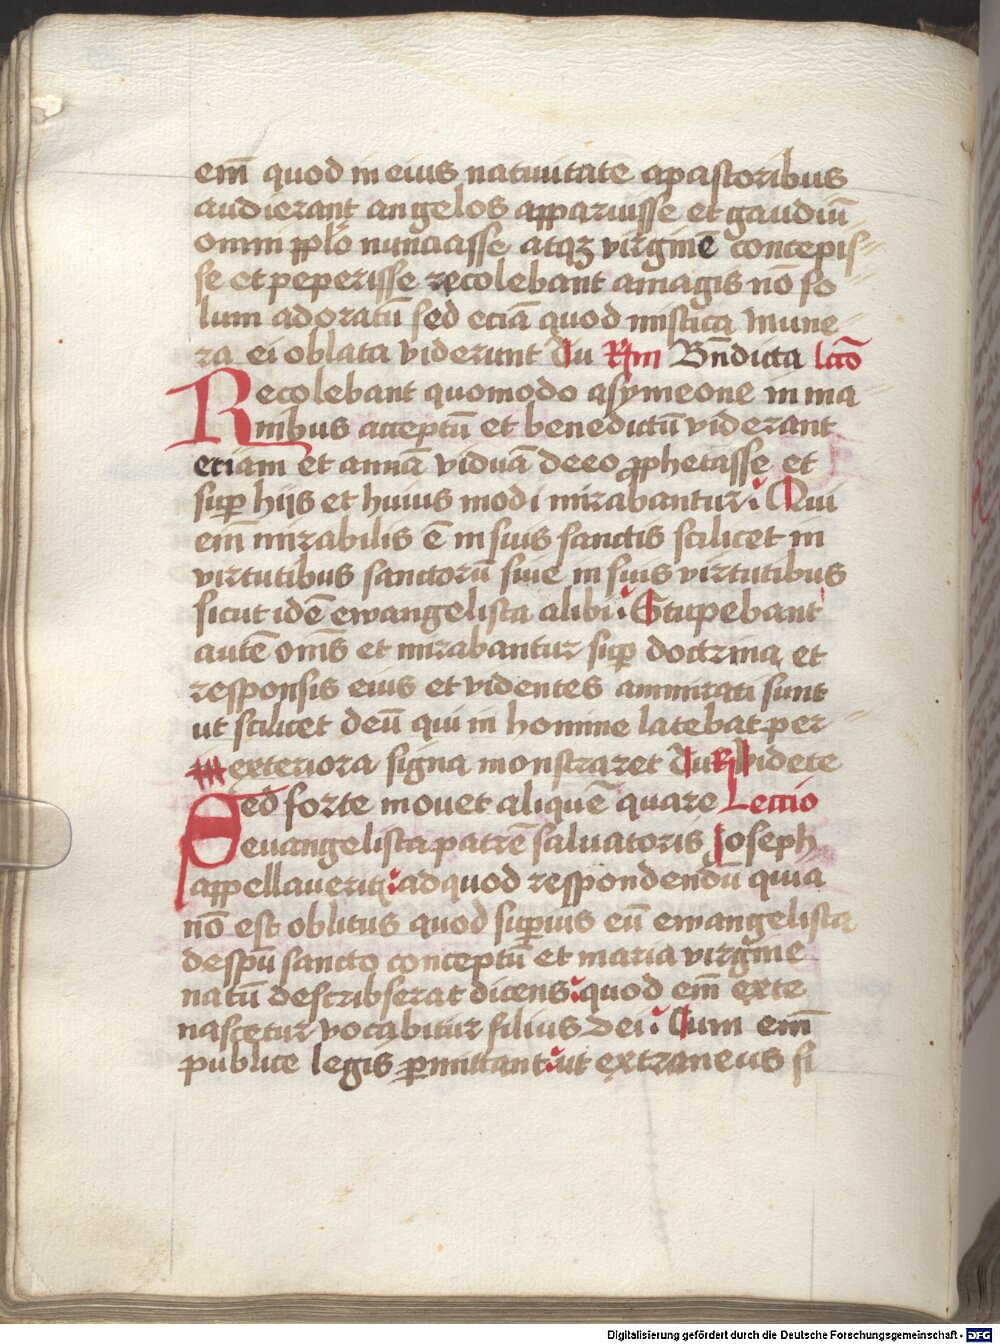 em̄ quod in eius natiuitate apastoribus
audierant angelos apparuisse et gaudiū
omni pplo nunciasse atqꝫ virginē concepis-
se et peperisse recolebant amagis nō so
lum adoratū sed eciā quod mistica mune-
ra ei oblata viderunt Tu Rm Bn̄dicta lcō
Recolebant quomodo asymeone in ma
nibus acceptū et benedictū viderant
etiam et annā viduā deeo ꝓphetasse et
suꝑ hijs et huius modi mirabantur: Qui
em̄ mirabilis ē in suis sanctis scilicet in
virtutibus sanctorū siue in suis virtutibus
sicut idē ewangelista alibi: Stupebant
autē om̄s et mirabantur suꝑ doctrina et
responsis eius et videntes ammirati sunt
ut scilicet deū qui in homine latebat per
exteriora signa monstraret Tu R Videte
Sed forte mouet aliquē quare Lectio
euangelista patrē saluatoris Joseph
appellauerit: adquod respondendū quia
nō est oblitus quod suꝑius eū ewangelista
despū sancto conceptū et maria virgine
natū describserat dicens: quod em̄ exte
nascetur vocabitur filius dei: Cum em̄
publice legis ꝑmittant: ut extraneus si
Digitalisierung gefördert durch die Deutsche Forschungsgemeinschaft - DFG